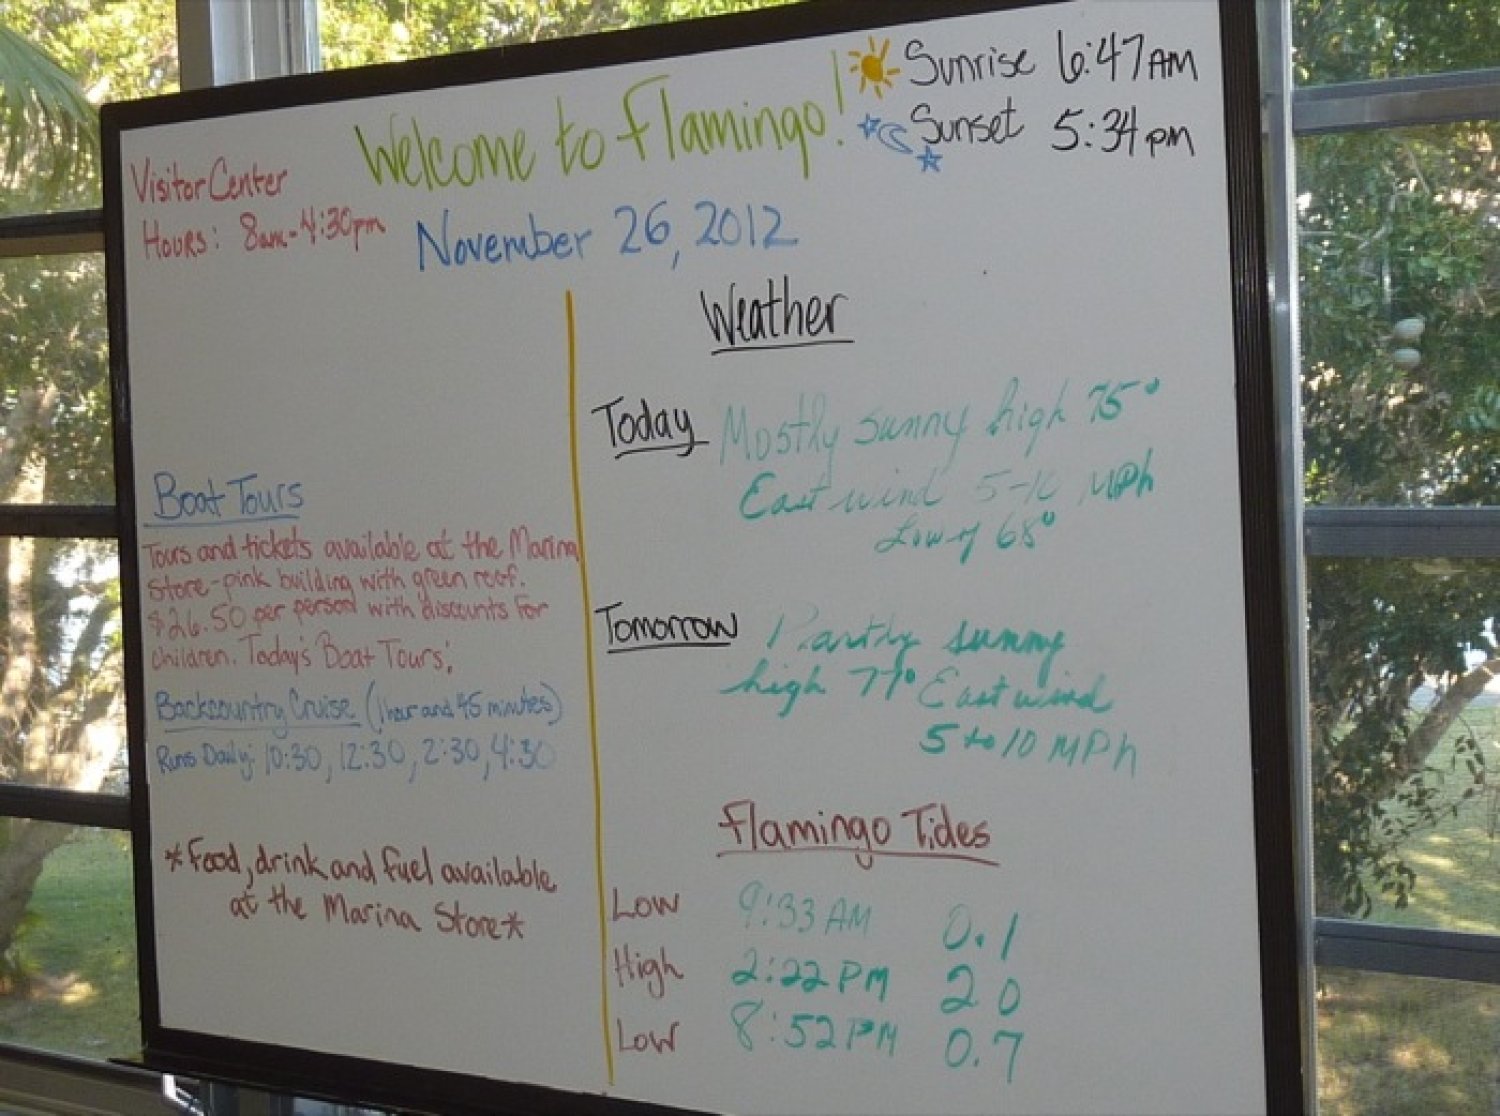 Welcome to Flamingo!
Sunrise 6:47 AM
Sunset 5:34 pm
Visitor Center
Hours: 8am-4:30pm
November 26, 2012
Boat Tours
Tours and tickets available at the Marina
Store-pink building with green roof.
$26.50 per person with discounts for
children. Today's Boat Tours:
Backcountry Cruise (1 hour and 45 minutes)
Runs Daily: 10:30, 12:30, 2:30, 4:30
*Food, drink and fuel available
at the Marina Store*
Weather
Today Mostly sunny high 75°
East wind 5-10 MPh
Low of 68°
Tomorrow Partly sunny
high 77° East wind
5 to 10 MPh
Flamingo Tides
Low 9:33 AM 0.1
High 2:22 PM 2 0
Low 8:52 PM 0.7